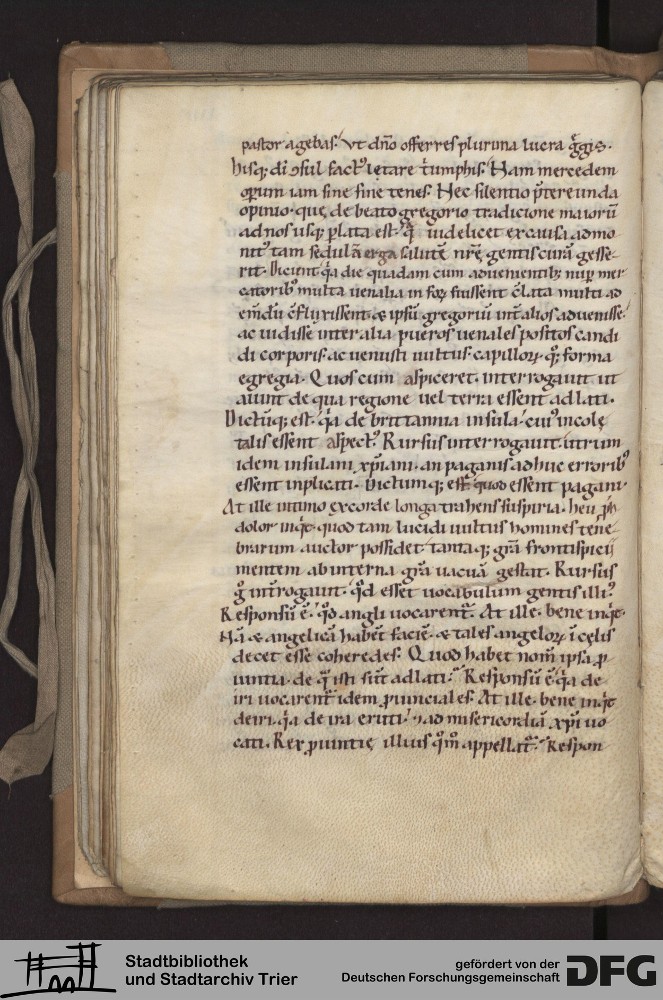 pastor agebas. Vt dn̄o offerres plurima lucra g̊gis.
hisq; dī ↄsul fact' lętare t̊umphis. Nam mercedem
operum iam sine fine tenes. Nec silentio p̄tereunda
opinio. que de beato gregorio tradicione maiorū
ad nos usq; plata est. q̄ uidelicet ex causa admo
nit' tam sedulā erga salutē nr̄ę gentis curā gesse
rit. Dicunt q̊a die quadam cum aduenientib; nup mer
catorib' multa uenalia in foꝝ fuissent c̄lata multi ad
em̄dū c̄fluxissent. & ipsū gregoriū int̄ alios aduenisse.
ac uidisse inter alia pueros uenales positos candi
di corporis. ac uenusti uultus. capilloꝝ q; forma
egregia. Quos cum aspiceret. interrogauit ut
aiunt de qua regione uel terra essent adlati.
Dictūq; est. q̊a de brittannia insula. cui' incolę
talis essent aspect'. Rursus interrogauit. utrum
idem insulani xp̄iani. an paganis adhuc errorib'
essent inplicati. Dictumq; est. quod essent pagani.
At ille intimo ex corde longa trahens suspiria. heu p̄h
dolor inq̊t. quod tam lucidi uultus homines tene
brarum auctor possidet. tantaq; gr̄a frontispicii
mentem ab interna gr̄a uacuā gestat. Rursus
g̊ int̄rogauit. q̊d esset uocabulum gentis illi'.
Responsū ē. q̊d angli uocarent̄. At ille. bene inq̊t.
Nā & angelicā habet faciē. & tales angeloꝝ ī cęlis
decet esse coheredes. Quod habet nom̄ ipsa ꝓ
uintia. de q̊ isti sūt adlati. Responsū ē. q̊a de
iri uocarent̄ idem ꝓuinciales. At ille. bene inq̊t
deiri. q̊a de ira eruti. & ad misericordiā xp̄i uo
cati. Rex ꝓuintię illius q̊m̊ appellat̄. Respon
Stadtbibliothek
und Stadtarchiv Trier
gefördert von der
Deutschen Forschungsgemeinschaft
DFG